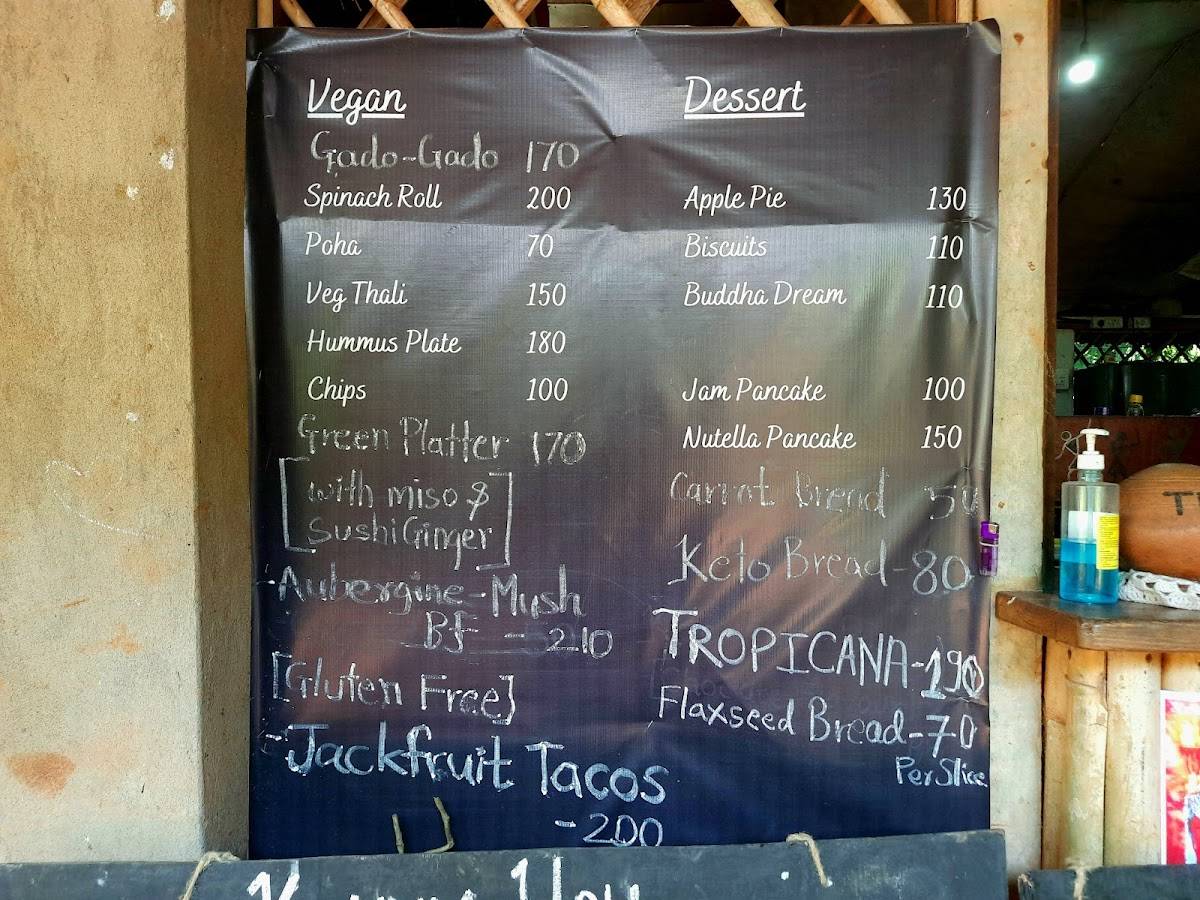 Vegan
Gado-Gado 170
Spinach Roll 200
Poha 70
Veg Thali 150
Hummus Plate 180
Chips 100
Green Platter 170
[with miso &
Sushi Ginger]
-Aubergine-Mush
BJ - 210
[Gluten Free]
-Jackfruit Tacos
-200
Dessert
Apple Pie 130
Biscuits 110
Buddha Dream 110
Jam Pancake 100
Nutella Pancake 150
Carrot Bread 50
Keto Bread-80
TROPICANA-190
Flaxseed Bread-70
Per Slice